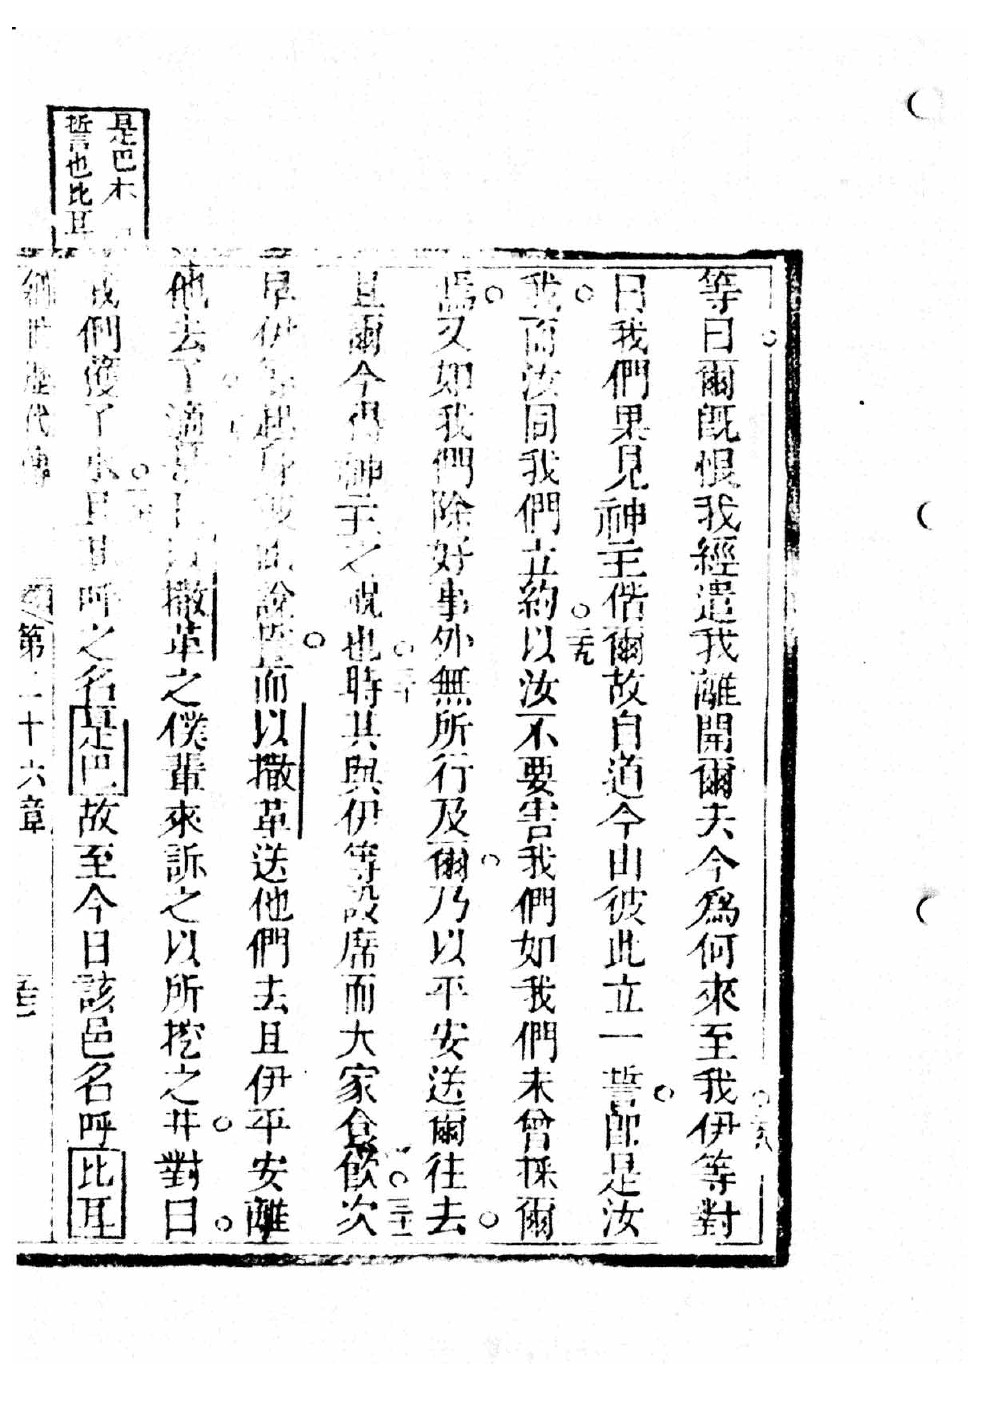 等曰爾既恨我經遣我離開爾夫今爲何來至我伊等對
曰我們果見神主偕爾故自道今由彼此立一誓卽是汝
我而汝同我們立約以汝不要害我們如我們未曾採爾
焉又如我們除好事外無所行及爾乃以平安送爾往去
且爾今得神主之祝也時其與伊等設席而大家食飮次
早伊等起身彼此說誓而以撒革送他們去且伊平安離
他去了 以撒革之僕輩來訴之以所挖之井對曰
我們獲了水且其呼之名是巴故至今日該邑名呼比耳
是巴
誓也比耳
創世歷代傳 第二十六章
二十九
三十
三十一